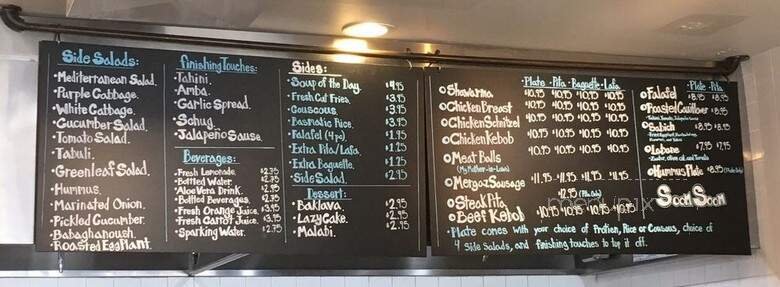 Side Salads:
• Mediterranean Salad.
• Purple Cabbage.
• White Cabbage.
• Cucumber Salad.
• Tomato Salad.
• Tabuli.
• Greenleaf Salad.
• Hummus.
• Marinated Onion.
• Pickled Cucumber.
• Babaghanoush.
• Roasted EggPlant.
Finishing Touches:
• Tahini.
• Amba.
• Garlic Spread.
• Schug.
• Jalapeño Sause.
Beverages:
• Fresh Lemonade. $2.75
• Bottled Water.
• Aloe Vera Drink.
• Bottled Beverages.
• Fresh Orange Juice. $3.95
• Fresh Carrot Juice.
• Sparking Water. $2.75
Sides:
• Soup of the Day. $4.95
• Fresh Cut Fries. $3.95
• Couscous. $3.95
• Basmatic Rice. $3.95
• Falafel (4pc) $1.95
• Extra Pita/Lafa. $1.25
• Extra Baguette. $1.25
• Side Salad. $2.95
Dessert:
• Baklava. $2.95
• Lazy Cake. $2.95
• Malabi. $2.95
• Plate • Pita • Baguette • Lafa.
Shawarma $10.95 $10.95 $10.95 $10.95
Chicken Breast $10.95 $10.95 $10.95 $10.95
Chicken Schnitzel $10.95 $10.95 $10.95 $10.95
Chicken Kebob $10.95 $10.95 $10.95 $10.95
Meat Balls $10.95 $10.95 $10.95 $10.95
(My Mother-in-Law)
Merguez Sausage $11.95 $11.95 $11.95 $11.95
Steak Pita $12.95 (Pita Only)
Beef Kebob $10.95 $10.95 $10.95 $10.95
• Plate comes with your choice of Protien, Rice or Cousous, choice of
4 Side Salads, and finishing touches to top it off.
• Plate • Pita
Falafel $8.95 $8.95
Roasted Cauliflower $8.95
Sabich $8.95 $8.95
Labane $7.95 $7.95
Zaatar, olive oil, and Tomato
Hummus Plate $8.95 (Plate Only)
Soom Soom
menupix